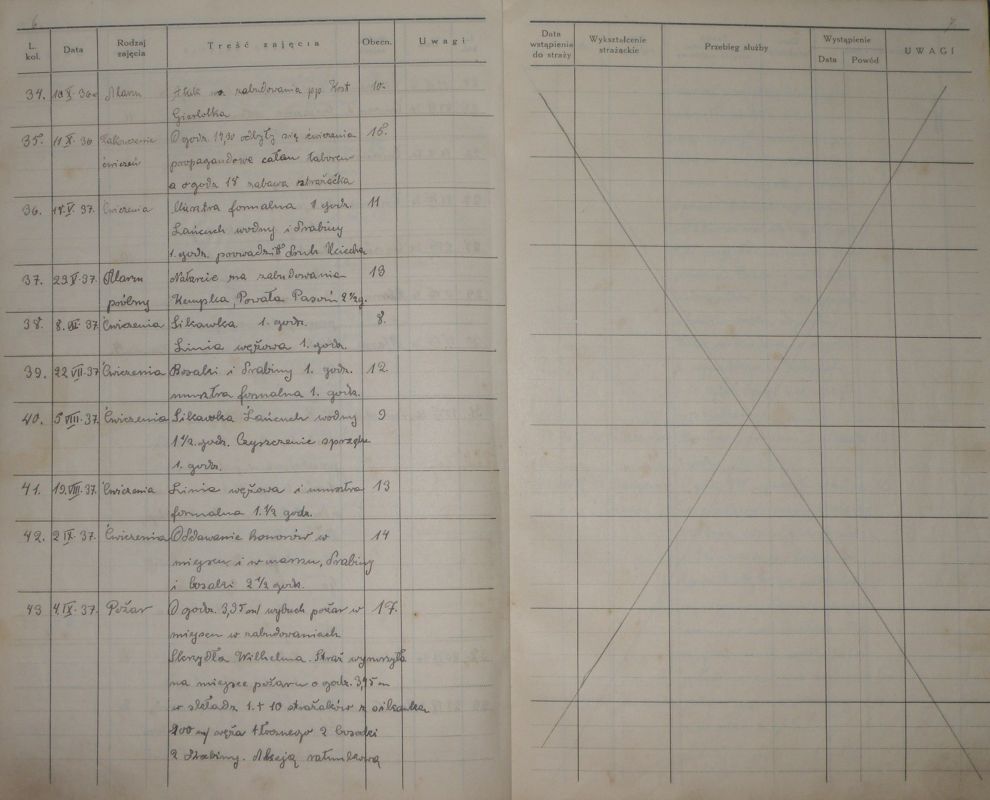 6
L. kol. Data Rodzaj zajęcia Treść zajęcia Obecn. Uwagi
34. Alarm na zabudowania p.p. Kost 10.
35. 11 X. 36 Zakończenie O godz. odbyły się ćwiczenia 15.
ćwiczeń propagandowe całym taborem
a o godz 18 zabawa strażacka
36. 14.V. 37. Ćwiczenia Musztra formalna 1 godz. 11
Łańcuch wodny i Drabiny
1. godz. prowadził Druh
37. 23.V.37. Alarm Natarcie na zabudowania 13
próbny Kempka, Powała 2½g.
38. 8. 37. Ćwiczenia Sikawka 1. godz. 8.
Linia wężowa 1. godz.
39. 22 VII.37 Ćwiczenia Bosaki i Drabiny 1. godz. 12.
musztra formalna 1. godz.
40. 5 VIII.37. Ćwiczenia Sikawka Łańcuch wodny 9
1½ godz. Czyszczenie sprzętu
1. godz.
41. 19.VIII.37. Ćwiczenia Linia wężowa i musztra 13
formalna 1.½ godz.
42. 2 IX.37. Ćwiczenia Oddawanie honorów w 14
miejscu i w marszu, Drabiny
i bosaki 2½ godz.
43 4.IX.37. Pożar O godz. 3,35 m/ wybuch pożar w 17.
miejscu w zabudowaniach
Skrzydła Wilhelma. Straż wyruszyła
na miejsce pożaru o godz. 3,45 m
w składzie 1.+ 10 strażaków z sikawką
200 m/ węża tłocznego 2 bosaki
2 Drabiny. Akcją ratunkową
7.
Data wstąpienia do straży Wykształcenie strażackie Przebieg służby Wystąpienie Data Powód UWAGI